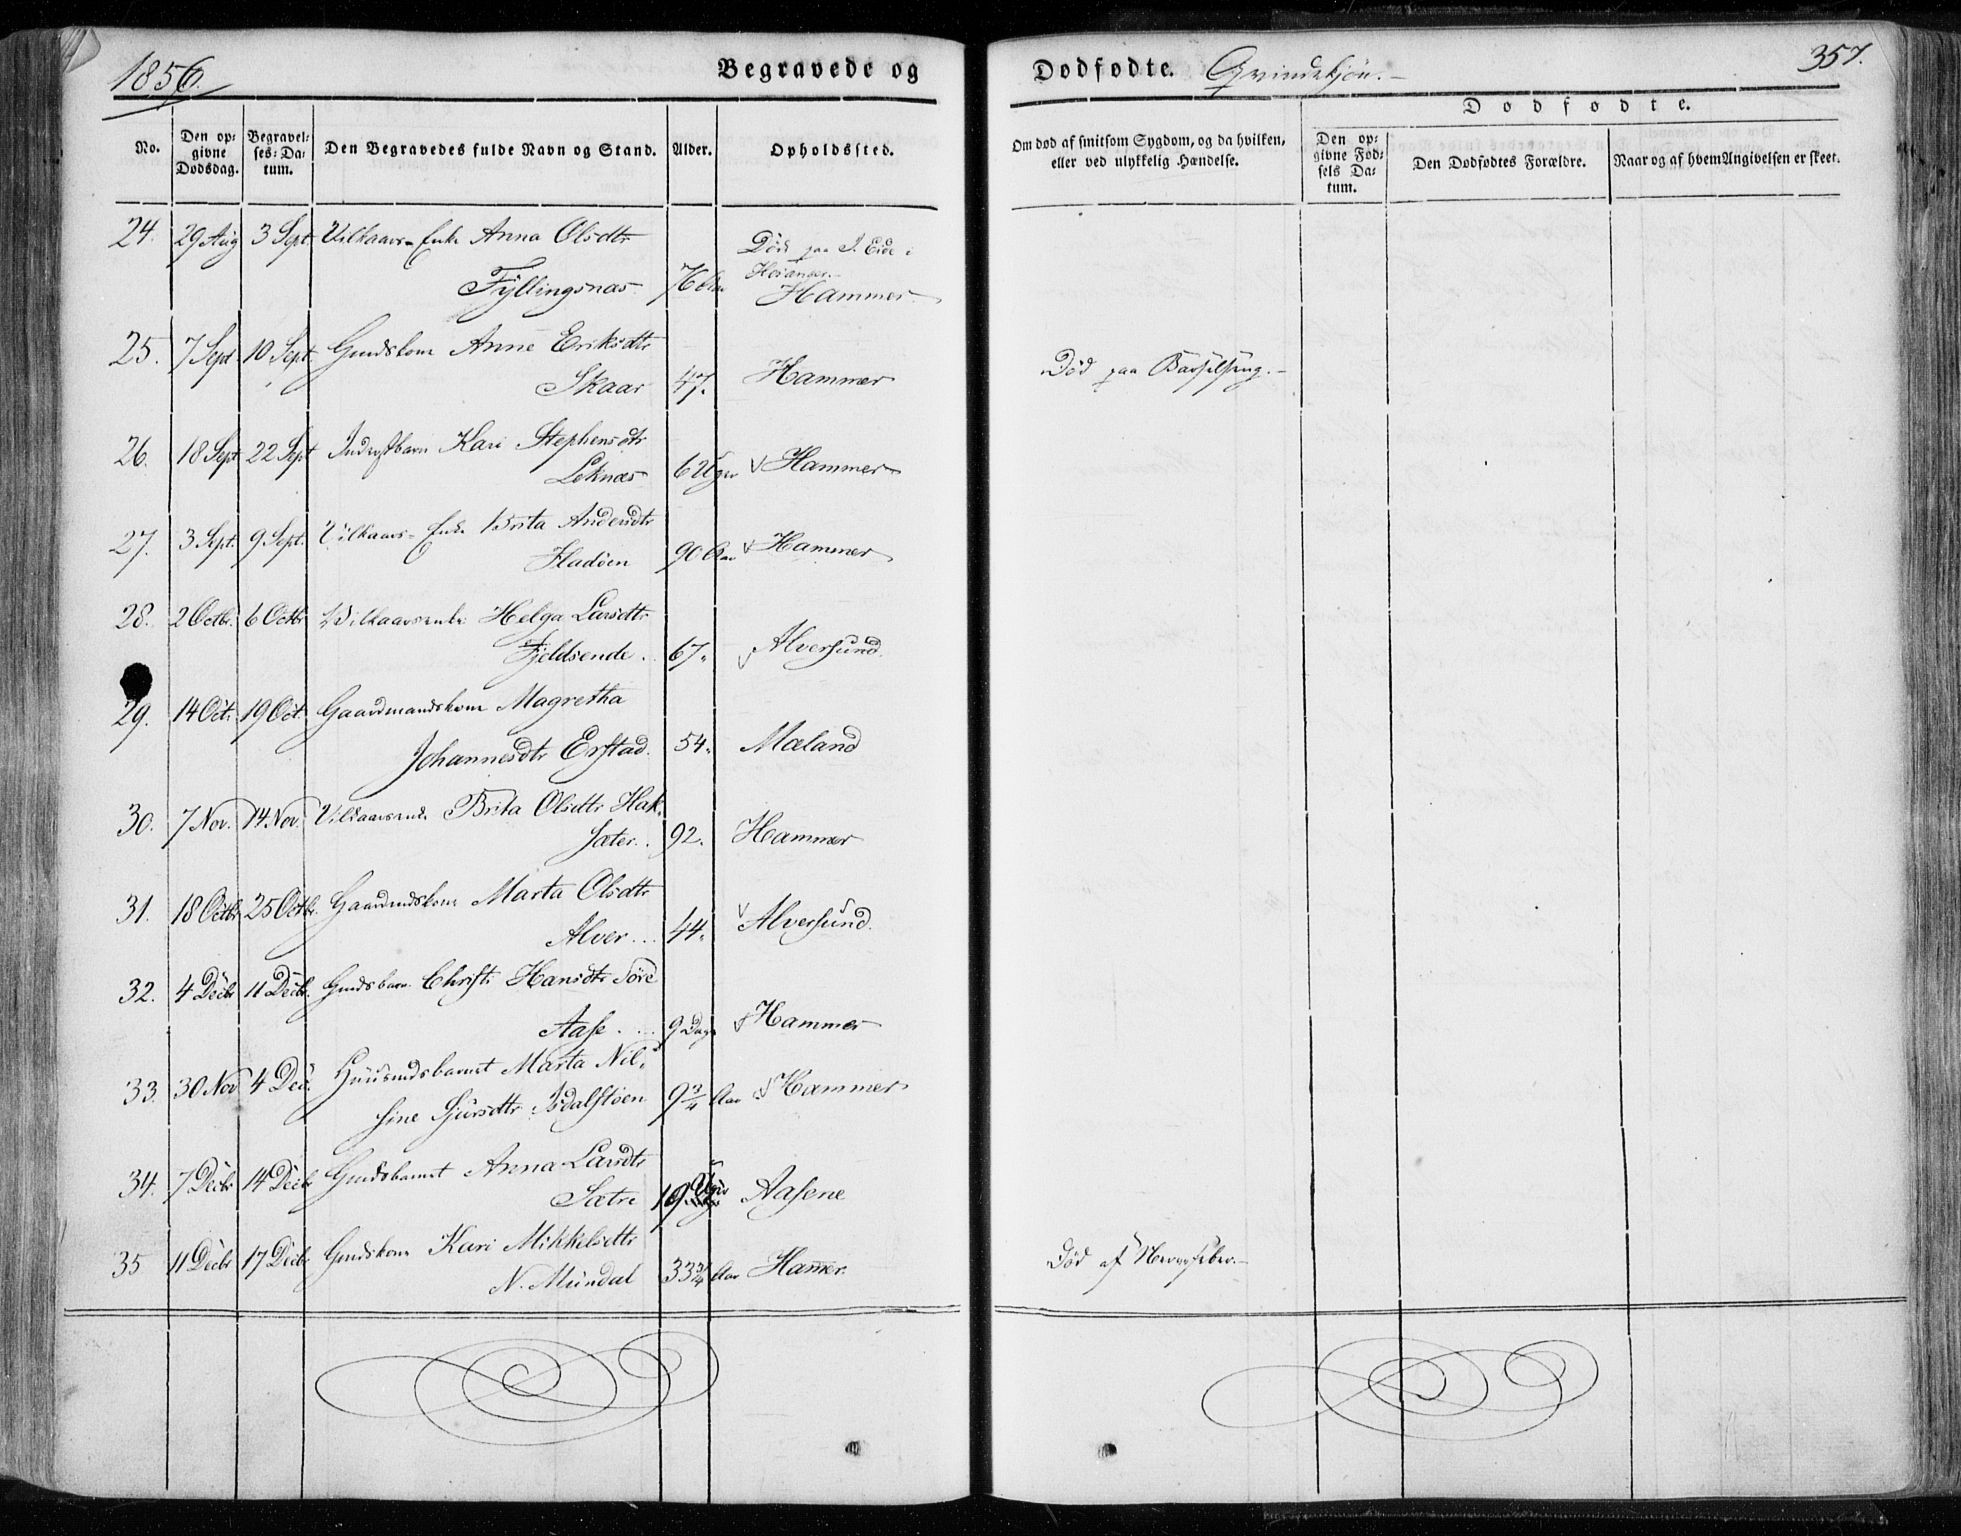 1856.
Begravede og
Dødfødte. Qvindekjøn.
357.
No.
Den opgivne Dødsdag.
Begravelses-Datum.
Den Begravedes fulde Navn og Stand.
Alder.
Opholdssted.
Om død af smitsom Sygdom, og da hvilken, eller ved ulykkelig Hændelse.
Dødfødte.
Den opgivne Fødsels Datum.
Den Dødfødtes Forældre.
Naar og af hvem Angivelsen er skeet.
24. 29 Aug 3 Sept. Vilkaars-Enke Anna Olsdtr Død paa Eide i
Hosanger.
Fyllingsnæs 76 Aar Hammer
25. 7 Sept 10 Sept. Gmdskone Anne Eriksdtr
Skaar 47. Hammer Død paa Barselseng.
26. 18 Sept 22 Sept Kari Stephensdtr
Leknæs 6 Uger Hammer
27. 3 Sept. 9 Sept. Vilkaars-Enke Brita Andersdtr
Fladøen 90 Aar Hammer
28. 2 Octbr. 6 Octbr Vilkaarsenke Helga Larsdtr
Fjeldsende. 67. Alversund.
29. 14 Oct. 19 Oct. Gaardmandskone Magretha
Johannesdtr Erstad. 54. Mæland
30. 7 Nov. 14 Nov. Vilkaarsenke Brita Olsdtr Hok-
sæter. 92. Hammer
31. 18 Octbr 25 Octbr. Gaardmdskone Marta Olsdtr
Alver... 44. Alversund.
32. 4 Decbr 11 Decbr. Gmdsbarn Christi Hansdtr Søre
Aase.... 9 Dage Hammer
33. 30 Nov 4 Dec. Huusmdsbarnet Marta Nil-
sine Sjursdtr Isdalstøen 9 3/4 Aar Hammer
34. 7 Decbr 14 Decbr Gmdsbarnet Anna Larsdtr
Sætre 19 Uger Aasene
35 11 Decbr 17 Decbr Gmdskone Kari Mikkelsdtr
N. Mundal 33 3/4 Aar Hammer. Død af Nervefeber.